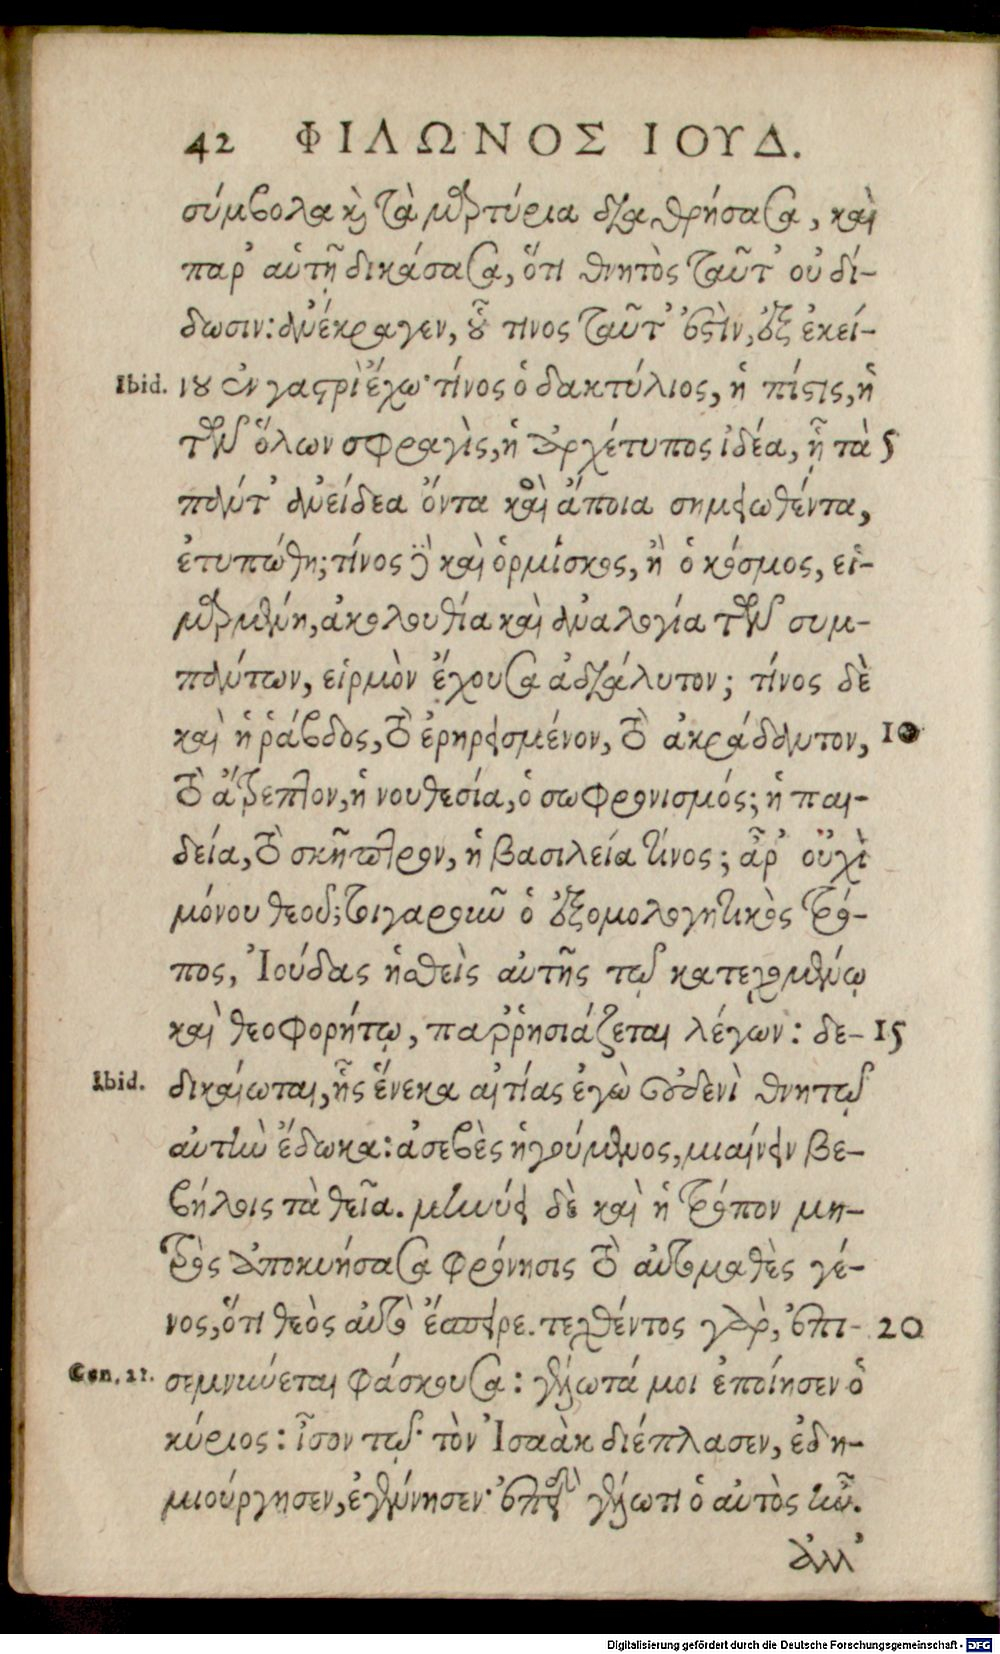 42 ΦΙΛΩΝΟΣ ΙΟΥΔ.
σύμβολα καὶ τὰ μαρτύρια διαθρήσασα, καὶ
παρ' αὑτῇ δικάσασα, ὅτι θνητὸς ταῦτ' οὐ δί-
δωσιν: ἀνέκραγεν, οὗ τινος ταῦτ' ἐστὶν, ἐξ ἐκεί-
Ibid. νου ἐν γαστρὶ ἔχω· τίνος ὁ δακτύλιος, ἡ πίστις, ἡ
τῶν ὅλων σφραγὶς, ἡ ἀρχέτυπος ἰδέα, ᾗ τὰ 5
πάντ' ἀνείδεα ὄντα καὶ ἄποια σημειωθέντα,
ἐτυπώθη; τίνος δὲ καὶ ὁρμίσκος, ἢ ὁ κόσμος, εἱ-
μαρμένη, ἀκολουθία καὶ ἀναλογία τῶν συμ-
πάντων, εἱρμὸν ἔχουσα ἀδιάλυτον; τίνος δὲ
καὶ ἡ ῥάβδος, τὸ ἐρηρεισμένον, τὸ ἀκράδαντον, 10
τὸ ἄτρεπτον, ἡ νουθεσία, ὁ σωφρονισμός; ἡ παι-
δεία, τὸ σκῆπτρον, ἡ βασιλεία τίνος; ἆρ' οὐχὶ
μόνου θεοῦ; τοιγαροῦν ὁ ἐξομολογητικὸς τρό-
πος, Ἰούδας ἡσθεὶς αὐτῆς τῷ κατεχομένῳ
καὶ θεοφορήτῳ, παῤῥησιάζεται λέγων: δε- 15
Ibid. δικαίωται, ἧς ἕνεκα αἰτίας ἐγὼ οὐδενὶ θνητῷ
αὐτὴν ἔδωκα: ἀσεβὲς ἡγούμενος, μιαίνειν βε-
βήλοις τὰ θεῖα. μηνύει δὲ καὶ ἡ τρόπον μη-
τρὸς ἀποκυήσασα φρόνησις τὸ αὐτομαθὲς γέ-
νος, ὅτι θεὸς αὐτὸ ἔσπειρε. τεχθέντος γὰρ, ἐπι- 20
Gen. 21. σεμνύεται φάσκουσα: γέλωτά μοι ἐποίησεν ὁ
κύριος: ἶσον τῷ· τὸν Ἰσαὰκ διέπλασεν, ἐδη-
μιούργησεν, ἐγέννησεν· ἐπειδὴ γέλωτι ὁ αὐτὸς ἦν.
ἀλλ'
Digitalisierung gefördert durch die Deutsche Forschungsgemeinschaft - DFG